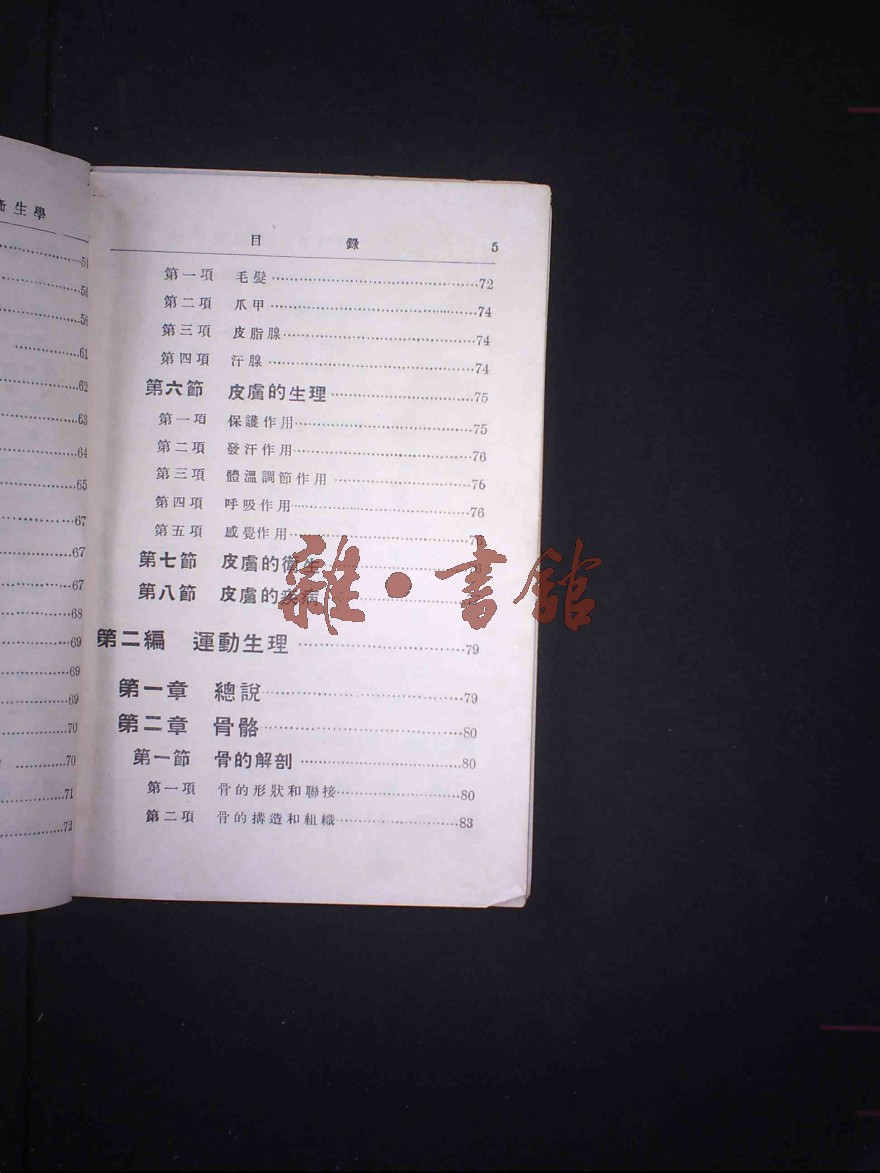 衛生學
54
56
58
61
62
63
64
65
67
67
67
68
69
69
69
70
70
71
72
目 錄 5
第一項 毛髮 72
第二項 爪甲 74
第三項 皮脂腺 74
第四項 汗腺 74
第六節 皮膚的生理 75
第一項 保護作用 75
第二項 發汗作用 76
第三項 體溫調節作用 76
第四項 呼吸作用 76
第五項 感覺作用
第七節 皮膚的衛生
第八節 皮膚的疾病
雜·書館
第二編 運動生理 79
第一章 總說 79
第二章 骨骼 80
第一節 骨的解剖 80
第一項 骨的形狀和聯接 80
第二項 骨的搆造和組織 83